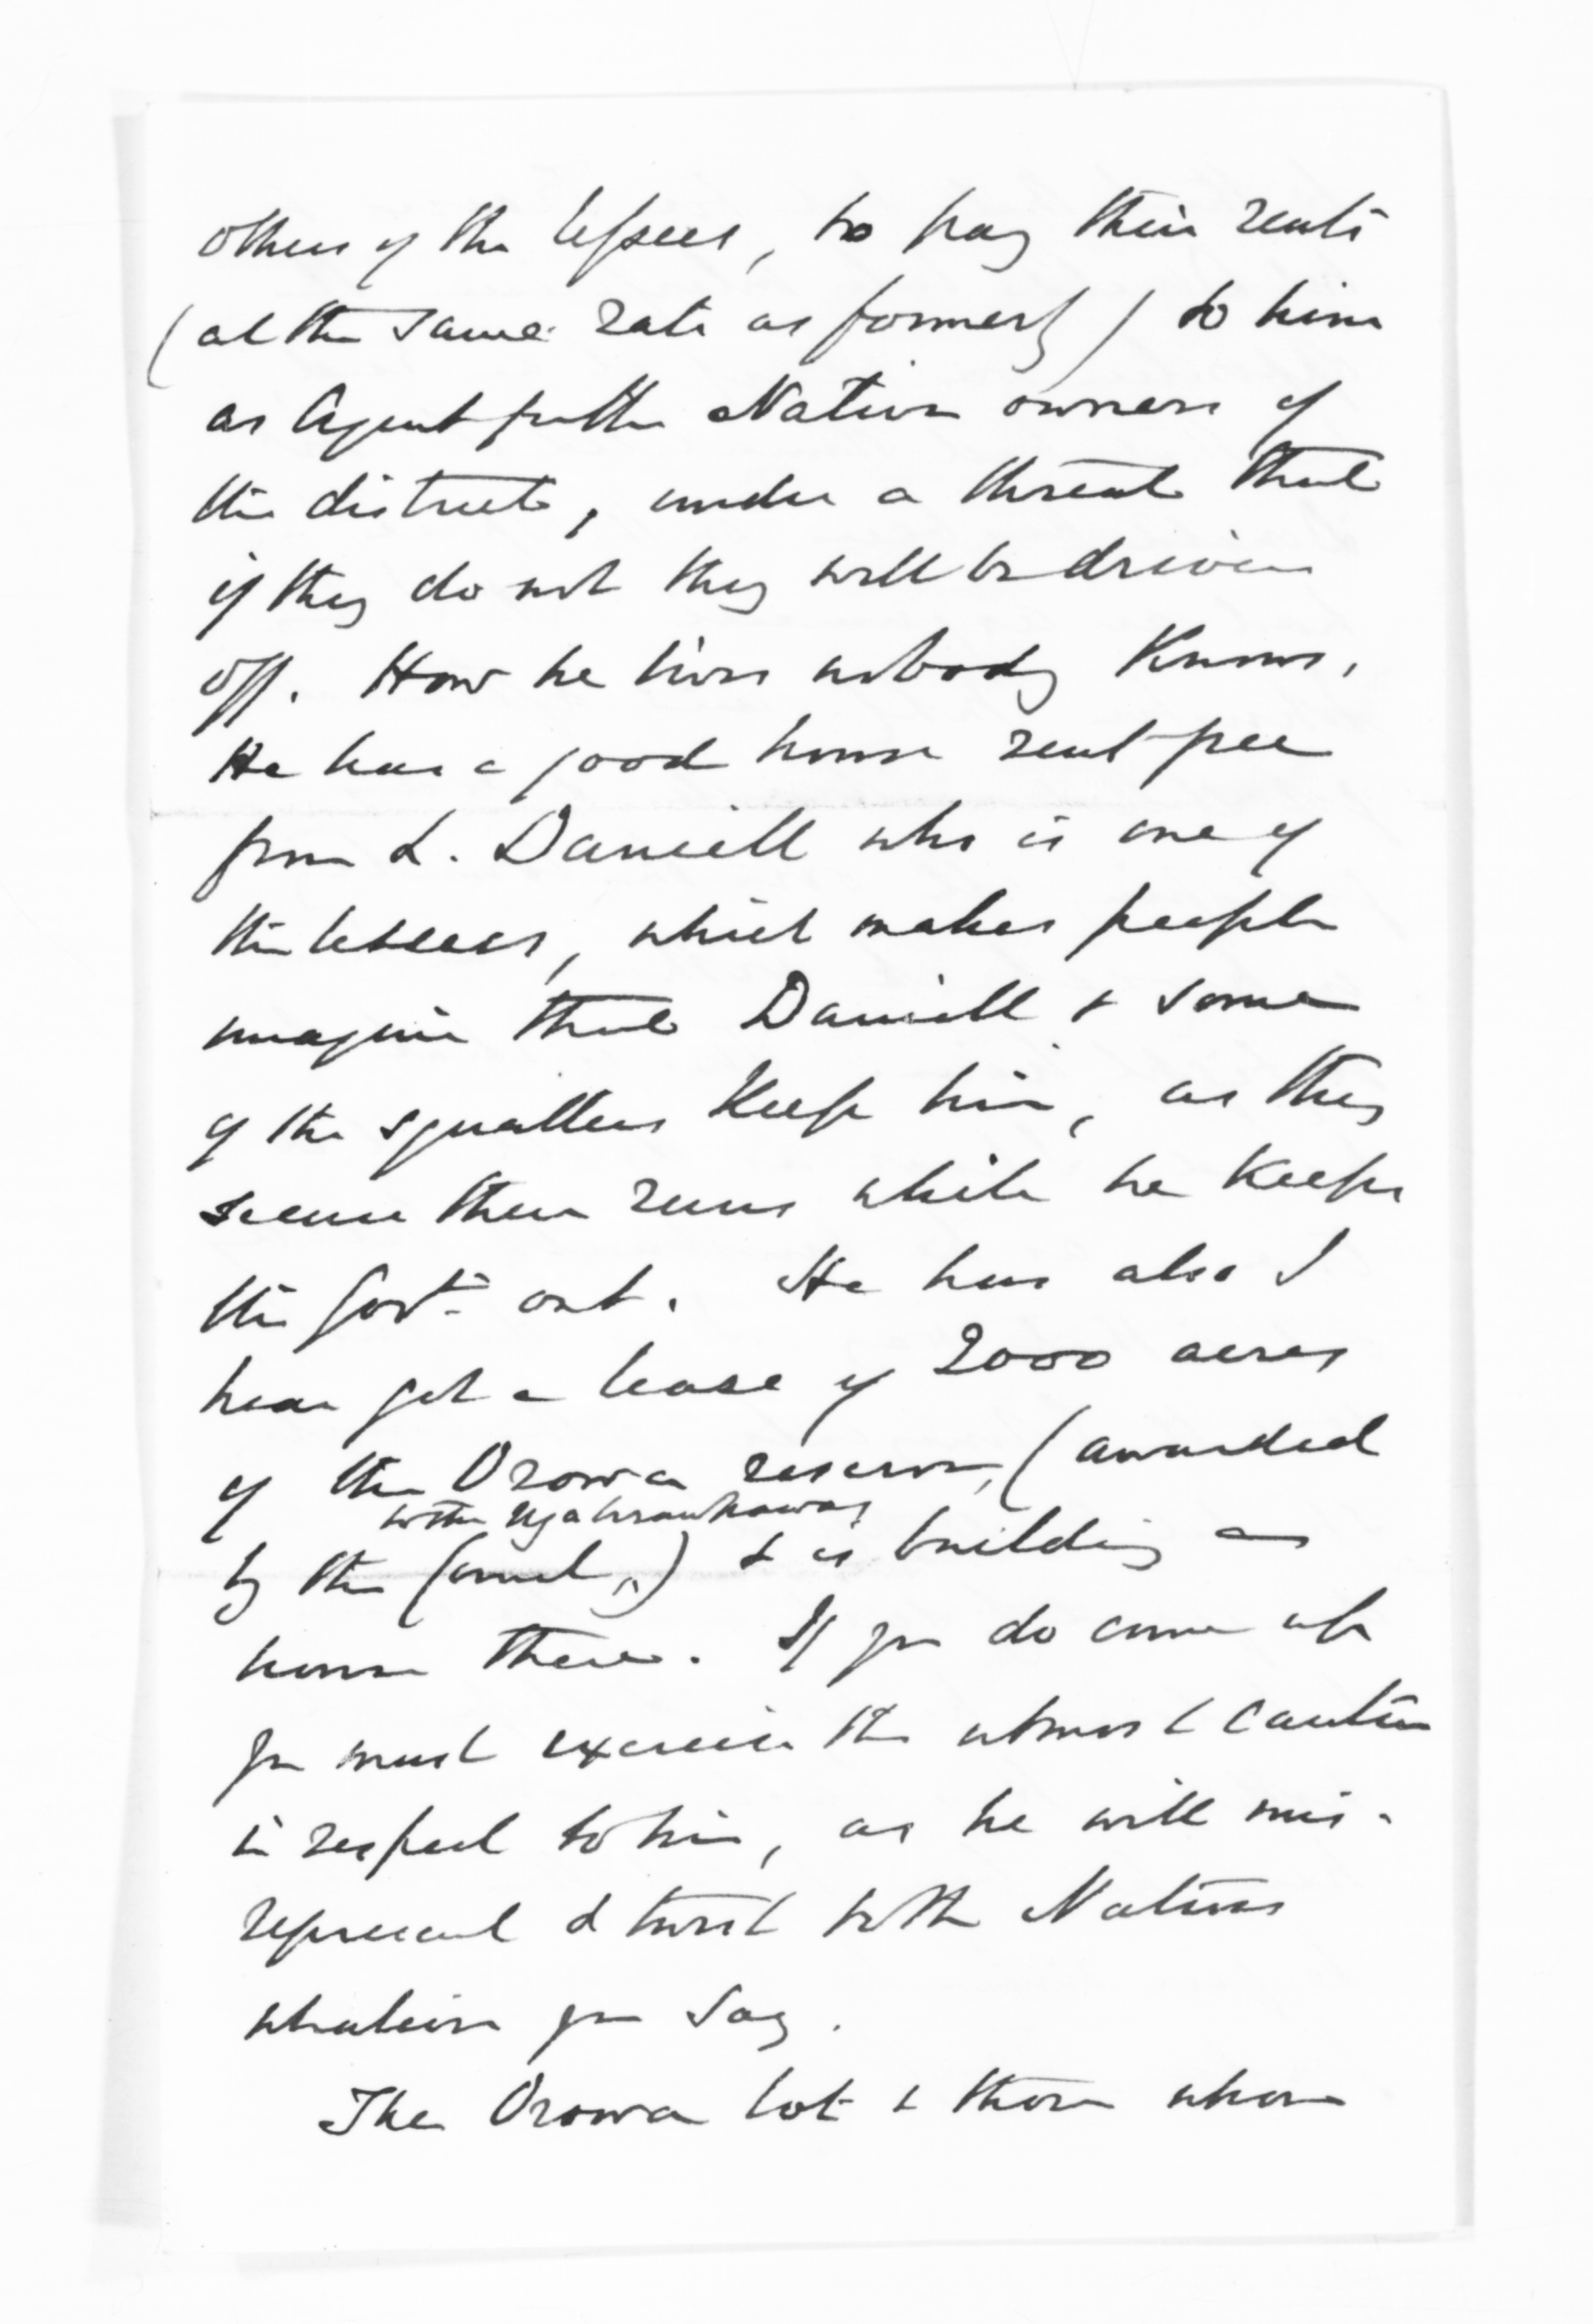 others of the lessees, to pay their rents
(at the same rate as formerly) to him
as Agent for the Native owners of
the district, under a threat that
if they do not they will be driven
off. How he lives nobody knows.
He has a good house rent free
from L. Daniell who is one of
the lessees, which makes people
imagine that Daniell & some
of the squatters keep him, as they
secure their runs while he keeps
the Govt. out. He has also I
hear got a lease of 2000 acres
of the Orowa reserve, (awarded
to the Ngatirauhawas
by the Court,) & is building a
house there. If you do come up
you must exercise the utmost caution
in respect to him, as he will mis-
represent & twist to the Natives
whatever you say.
The Orowa lot & those whose